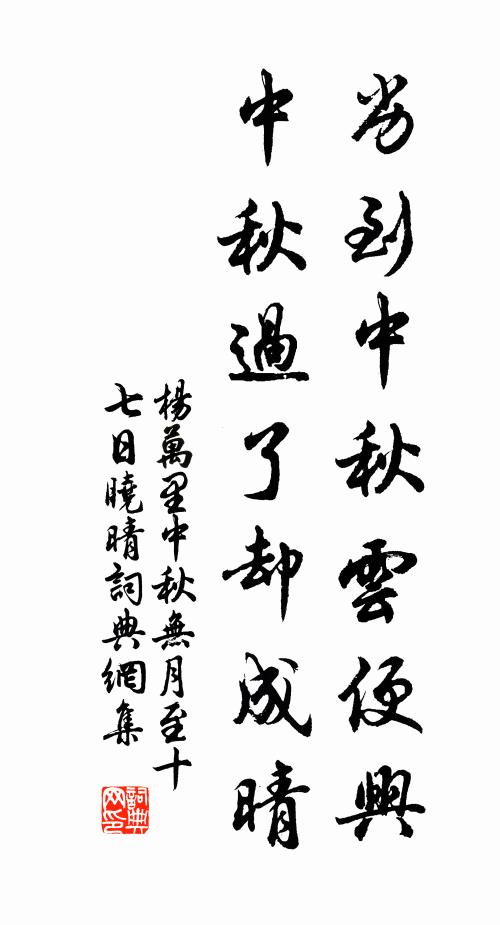 劣到中秋雲便興
中秋過了却成晴
楊萬里中秋無月至十
七日曉晴詞典網集
詞典
网印